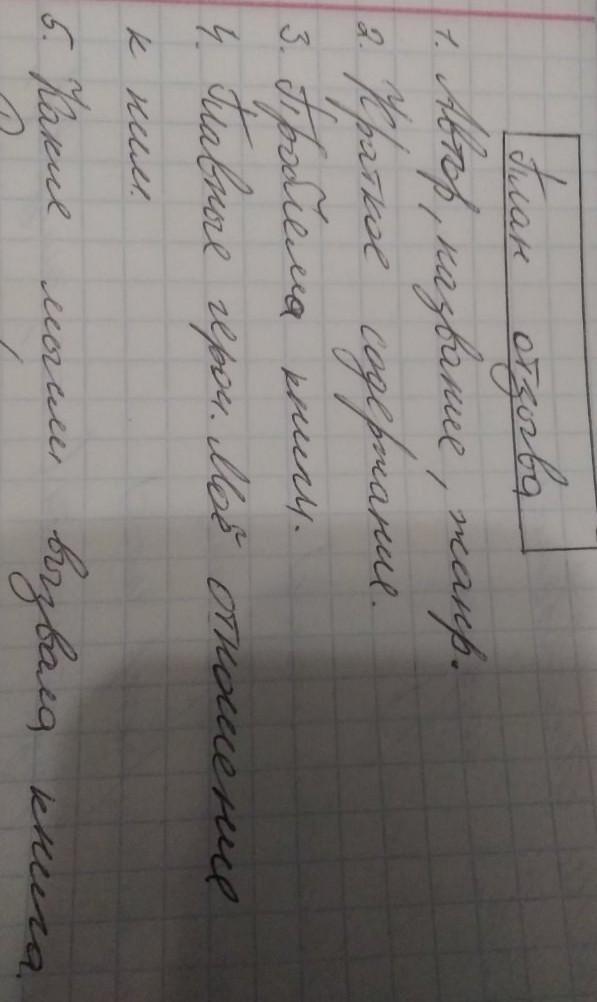 План отзыва
1. Автор, название, жанр.
2. Краткое содержание.
3. Проблема книги.
4. Главные герои. Моё отношение
к ним.
5. Какие мысли вызвала книга.